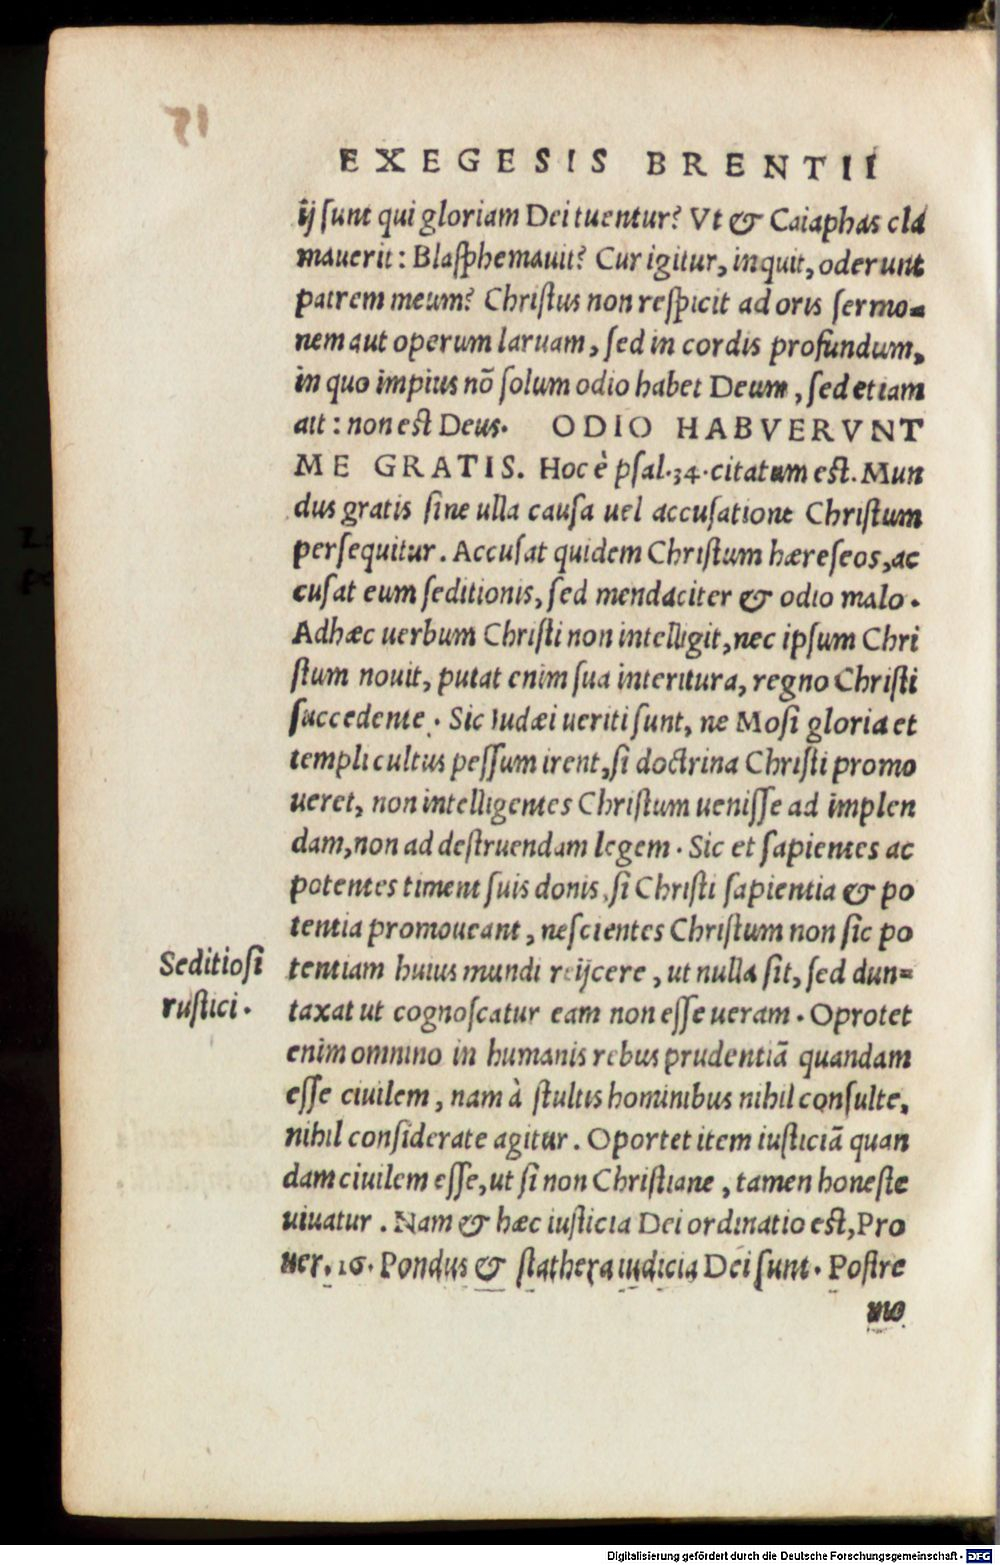 EXEGESIS BRENTII
ij sunt qui gloriam Dei tuentur? Vt & Caiaphas cla
mauerit: Blasphemauit? Cur igitur, inquit, oderunt
patrem meum? Christus non respicit ad oris sermo=
nem aut operum laruam, sed in cordis profundum,
in quo impius nō solum odio habet Deum, sed etiam
ait: non est Deus. ODIO HABVERVNT
ME GRATIS. Hoc è psal. 34. citatum est. Mun
dus gratis sine ulla causa uel accusatione Christum
persequitur. Accusat quidem Christum hæreseos, ac
cusat eum seditionis, sed mendaciter & odio malo.
Adhæc uerbum Christi non intelligit, nec ipsum Chri
stum nouit, putat enim sua interitura, regno Christi
succedente. Sic Iudæi ueriti sunt, ne Mosi gloria et
templi cultus pessum irent, si doctrina Christi promo
ueret, non intelligentes Christum uenisse ad implen
dam, non ad destruendam legem. Sic et sapientes ac
potentes timent suis donis, si Christi sapientia & po
tentia promoueant, nescientes Christum non sic po
Seditiosi tentiam huius mundi reijcere, ut nulla sit, sed dun=
rustici. taxat ut cognoscatur eam non esse ueram. Oprotet
enim omnino in humanis rebus prudentiā quandam
esse ciuilem, nam à stultis hominibus nihil consulte,
nihil considerate agitur. Oportet item iusticiā quan
dam ciuilem esse, ut si non Christiane, tamen honeste
uiuatur. Nam & hæc iusticia Dei ordinatio est, Pro
uer. 16. Pondus & stathera iudicia Dei sunt. Postre
mo
Digitalisierung gefördert durch die Deutsche Forschungsgemeinschaft - DFG